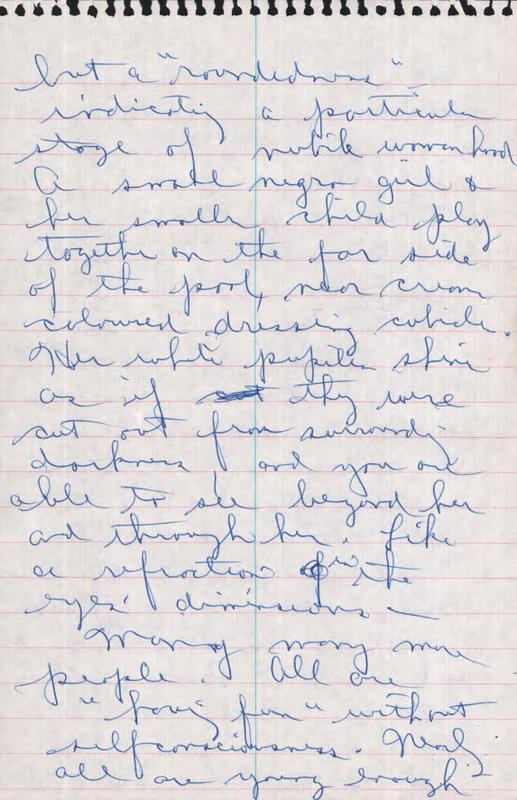 but a "roundedness" -
indicating a particular
stage of nubile womanhood
A small negro girl &
her smaller child play
together on the far side
of the pool, near cream
coloured dressing cubicle.
Her white pupils shine
as if they were
cut out from surrounding
darkness and you are
able to see beyond her
and through her. Like
a refraction in the
eyes' dimensions —
Many many more
people. All are
"having fun" without
selfconsciousness. Nearly
all are young enough